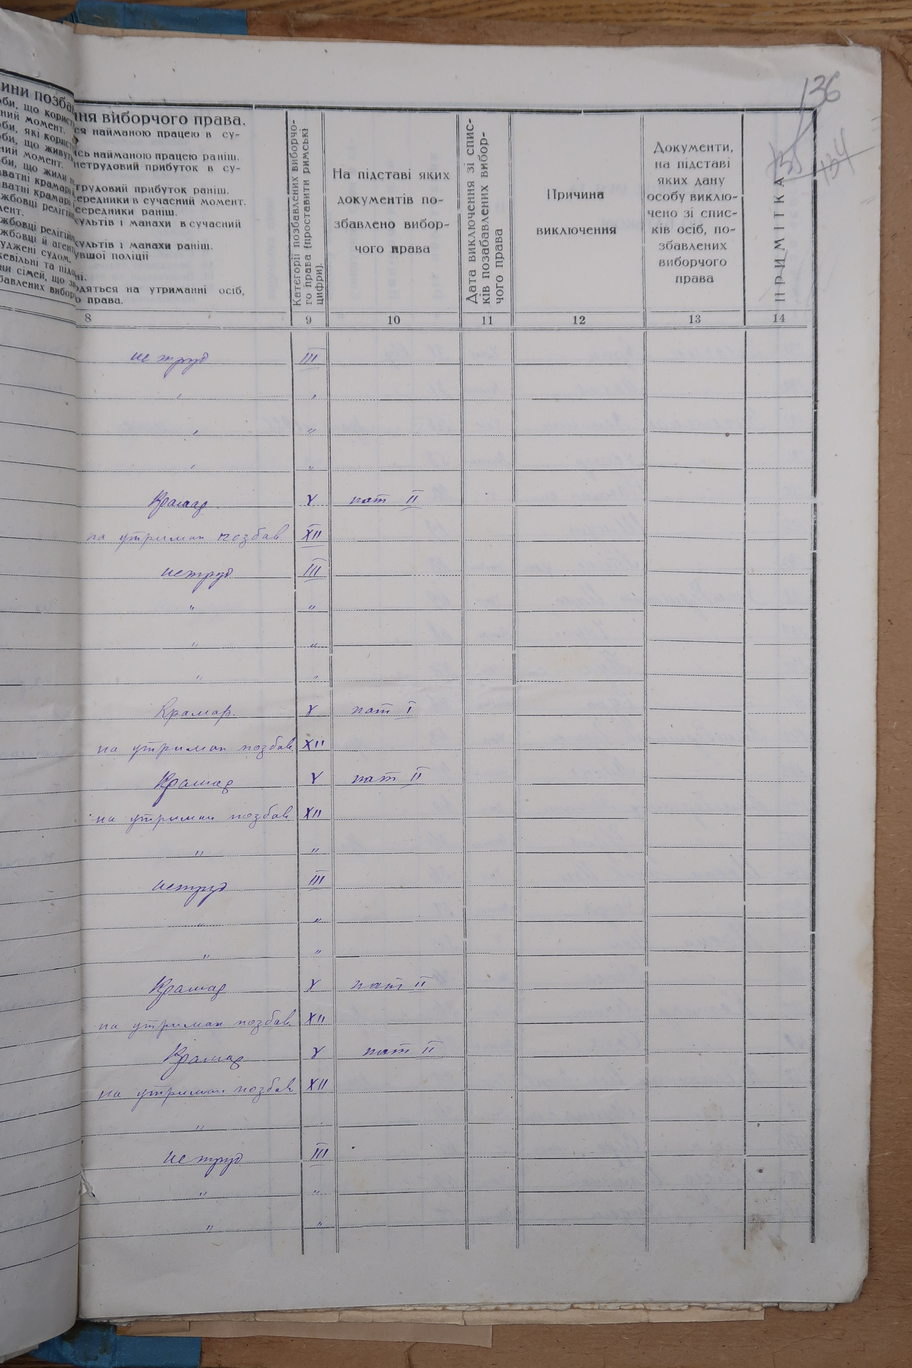 136
134
ння виборчого права.
ся найманою працею в су-
сь найманою працею раніш.
нетрудовий прибуток в су-
трудовий прибуток раніш.
середники в сучасний момент.
середники раніш.
культів і манахи в сучасний
культів і манахи раніш.
увшої поліції
одяться на утриманні осіб,
о права.
Категорії позбавлених виборчо-
го права (проставити римська
цифри).
На підставі яких
документів по-
збавлено вибор-
чого права
Дата виключення зі спис-
ків позабавлених вибор-
чого права
Причина
виключення
Документи,
на підставі
яких дану
особу виклю-
чено зі спис-
ків осіб, по-
збавлених
виборчого
права
ПРИМІТКА
8 9 10 11 12 13 14
не труд III
" "
" "
" "
Крамар V пат II
на утриман позбав XII
нетруд III
" "
" "
" "
Крамар. V пат I
на утриман позбав XII
Крамар V пат II
на утриман позбав XII
" "
нетруд III
" "
" "
Крамар V пат II
на утриман позбав. XII
Крамар V пат II
на утриман позбав XII
"
не труд III
" "
" "